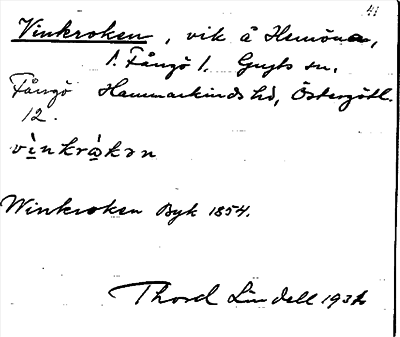 Vinkroken, vik å Hemöna,
1. Fångö 1. Gryts sn.
Fångö Hammarkinds hd, Östergötl.
12.
vìnkrȧ̀kən
Winkroken Byk 1854.
Thord Lindell 1932